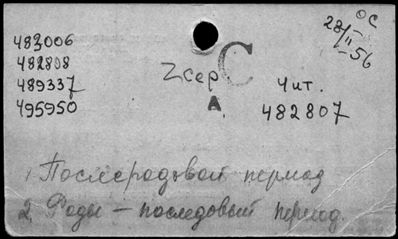 483006
482808
489337
495950
2сер С
А
Чит.
482807
ОС
28/II-56
1 Послеродовой период
2 Роды – последовый период.